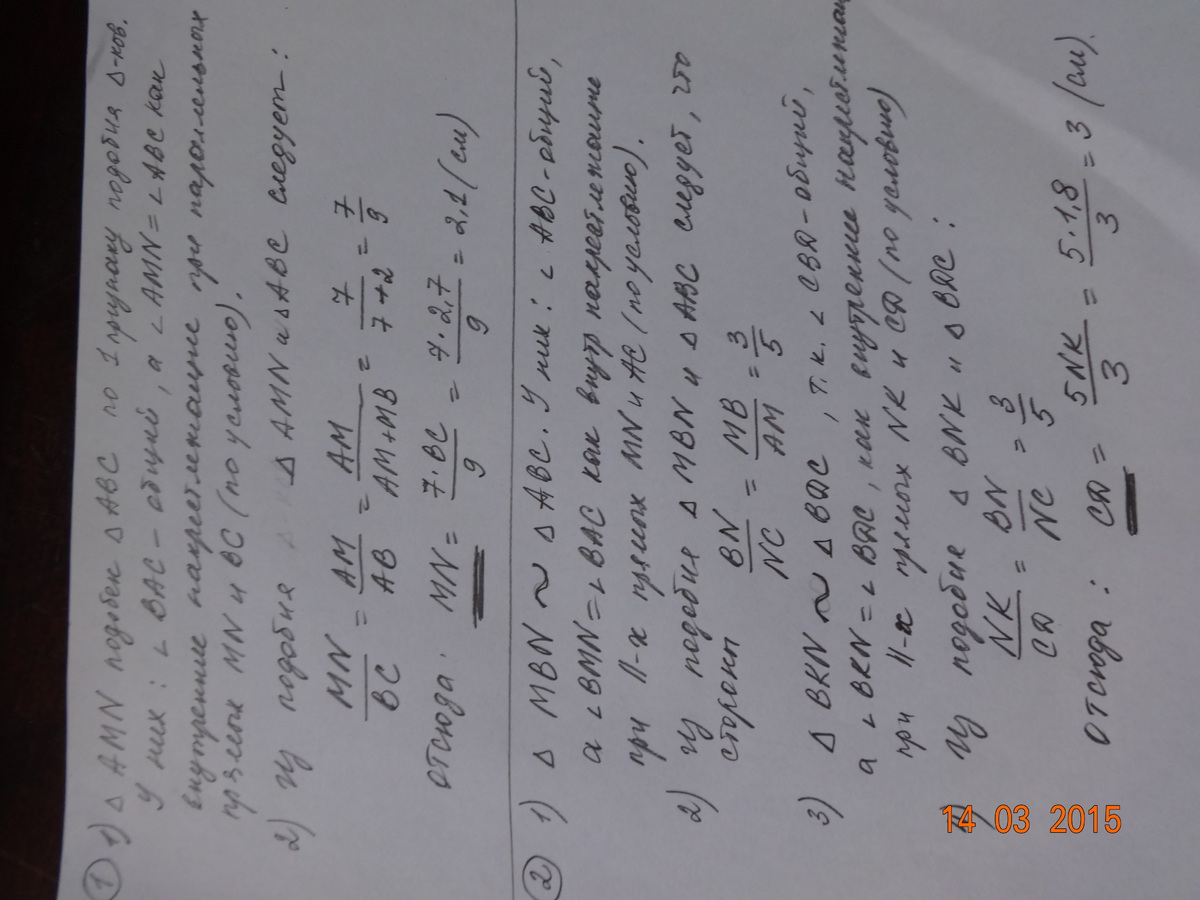 ① 1) Δ AMN подобен Δ ABC по 1 признаку подобия Δ-ков.
У них: ∠ BAC – общий, а ∠ AMN = ∠ ABC как
внутренние накрестлежащие при параллельных
прямых MN и BC (по условию).
2) Из подобия Δ AMN и Δ ABC следует:
MN/BC = AM/AB = AM/(AM+MB) = 7/(7+2) = 7/9
отсюда: MN = 7·BC/9 = 7·2,7/9 = 2,1 (см)
② 1) Δ MBN ~ Δ ABC. У них: ∠ ABC – общий,
а ∠BMN = ∠BAC как внутр накрестлежащие
при ||-х прямых MN и AC (по условию).
2) Из подобия Δ MBN и Δ ABC следует, что
стороны BN/NC = MB/AM = 3/5
3) Δ BKN ~ Δ BDC, т.к. ∠ CBD – общий,
а ∠ BKN = ∠ BDC, как внутренние накрестлежащ
при ||-х прямых NK и CD (по условию)
Из подобия Δ BNK и Δ BDC:
NK/CD = BN/NC = 3/5
отсюда: CD = 5NK/3 = 5·1,8/3 = 3 (см).
14 03 2015